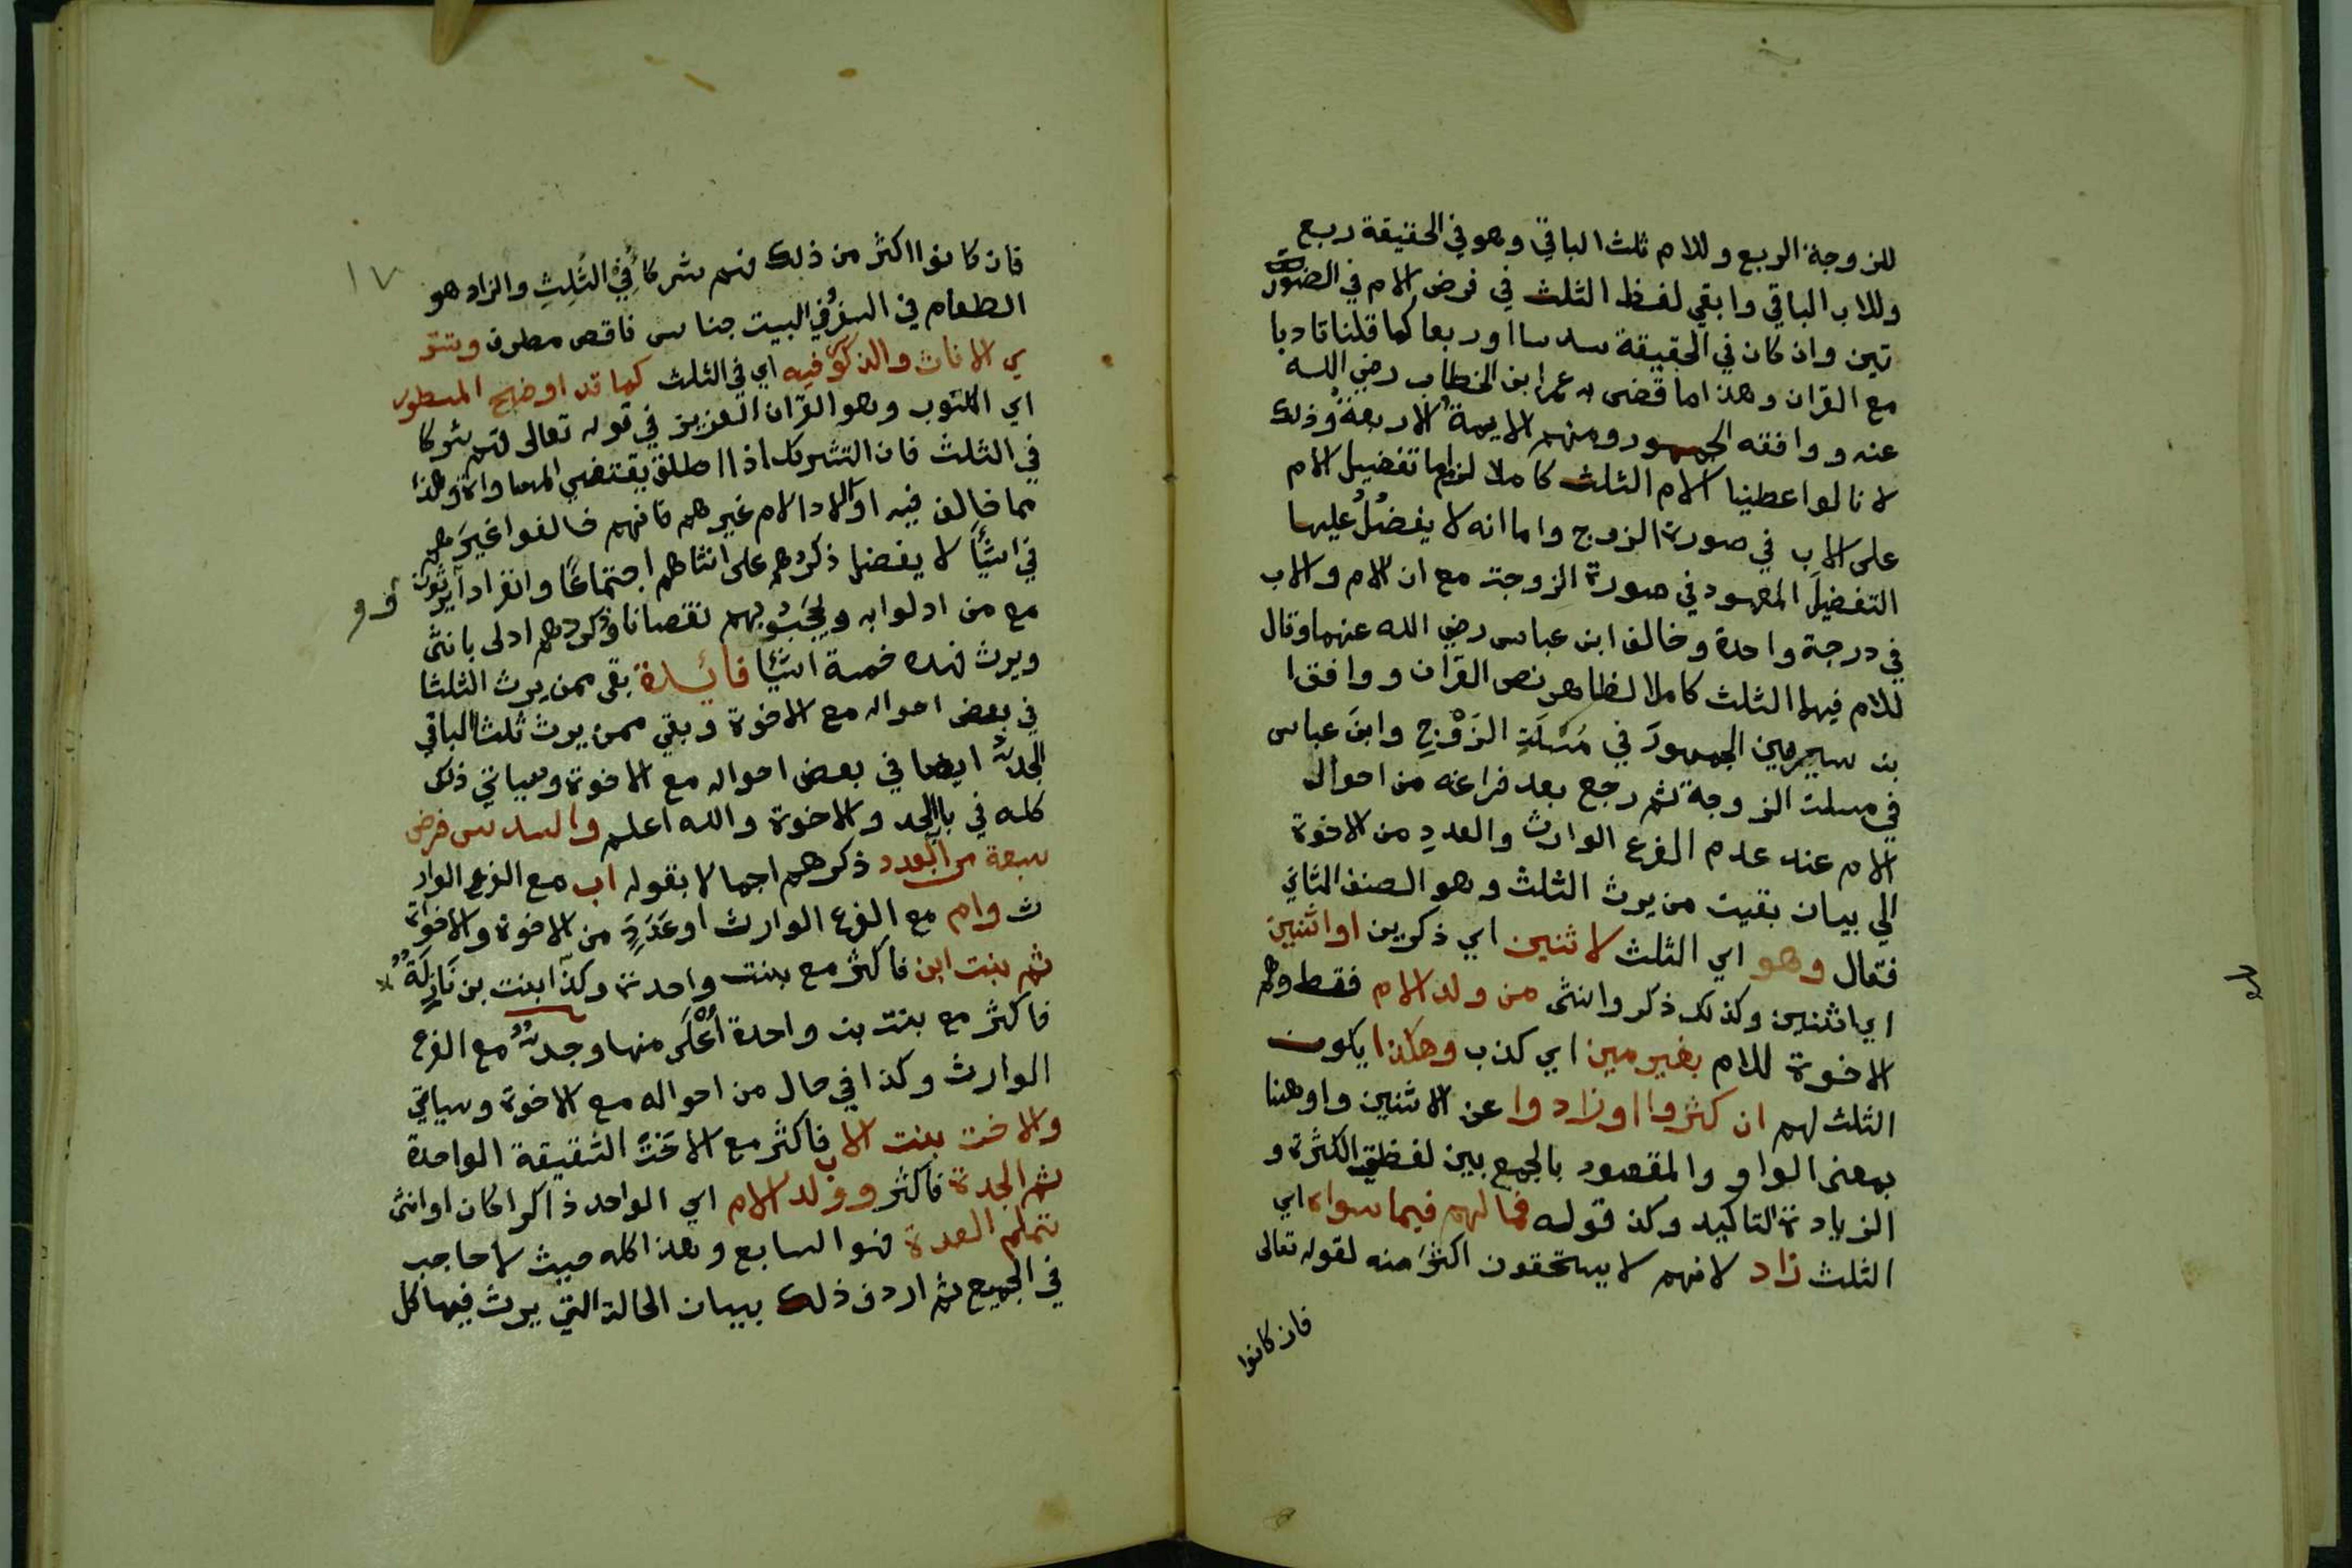 للزوجة الربع وللام ثلث الباقي وهو في الحقيقة ربع
وللاب الباقي وابقي لفظ الثلث في فرض الام في الصور
تين وان كان في الحقيقة سدسا اوربعا كما قلنا تادبا
مع القران وهذا ما قضى به عمر ابن الخطاب رضي الله
عنه ووافقه الجمهور ومنهم الايمة الاربعة وذلك
لانا لو اعطينا الام الثلث كاملا لزم اما تفضيل الام
على الاب في صورة الزوج واما انه لا يفضل عليها
التفضيل المعهود في صورة الزوجة مع ان الام والاب
في درجة واحدة وخالف ابن عباس رضي الله عنهما وقال
للام فيهما الثلث كاملا لظاهر نص القران ووافق ا
بن سيرين الجمهورَ في مسَلَتِ الزَوْجِ وابنَ عباس
في مسلت الزوجة ثم رجع بعد فراغه من احوال
الام عند عدم الفرع الوارث والعددِ من الاخوة
الي بيان بقيت من يرث الثلث وهو الصنف الثاني
فقال وهو اي الثلث لاثنين اي ذكرين او اثنتين
اي اثنتين وكذلك ذكر وانثى من ولد الام فقط وهم
الاخوة للام بغير مين اي كذب وهكذا يكون
الثلث لهم ان كثروا اوزادوا عن الاثنين واو هنا
بمعنى الواو والمقصود بالجمع بين لفظتي الكثرة و
الزيادة التاكيد وكذ قوله فما لهم فيما سواه اي
الثلث زاد لانهم لا يستحقون اكثرَ منه لقوله تعالى
فان كانوا
١٧
فان كانوا اكثر من ذلك فهم شركاُ في الثُلِثِ والزاد هو
الطعام في السفر وفي البيت جناس ناقص مطرف وتستو
ي الاناث والذكور فيه اي في الثلث كما قد اوضح المسطور
اي المكتوب وهو القران العزيز في قوله تعالى فهم شركا
في الثلث فان التشريك اذا اطلق يقتضي المساواة وهذا
مما خالف فيه اولاد الام غيرهم فانهم خالفوا غيرَهم
في اشيًا لا يفضل ذكرهم على انثاهم اجتماعًا وانفرادا يرثون
مع من ادلوا به ويحجب بهم نقصانا وذكرهم ادلى بانثى
ويرث فهذه خمسة اشيًا فائدة بقي ممن يرث الثلث ا
في بعض احواله مع الاخوة وبقي ممن يرث ثلث الباقي
الجد ايضا في بعض احواله مع الاخوة وسياتي ذلك
كله في باب الجد والاخوة والله اعلم والسدس فرض
سبعة من العدد ذكرهم اجمالا بقوله اب مع الفرع الوار
ث وام مع الفرع الوارث او عَدَدٍ من الاخوة والاخواة
ثم بنت ابن فاكثر مع بنت واحدة وكذا بنت بن نَازِلَةٌ
فاكثر مع بنت بن واحدة أعْلَى منها وجدٌ مع الفرع
الوارث وكذا في حال من احواله مع الاخوة وسياتي
والاخت بنت الاب فاكثر مع الاختِ الشقيقة الواحدة
ثم الجدة فاكثر وولد الام اي الواحد ذاكرا كان او انثى
تملم العدة فهو السابع وهذا كله حيث لا حاجب
في الجميع ثم اردف ذلك ببيان الحالة التي يرث فيها كل